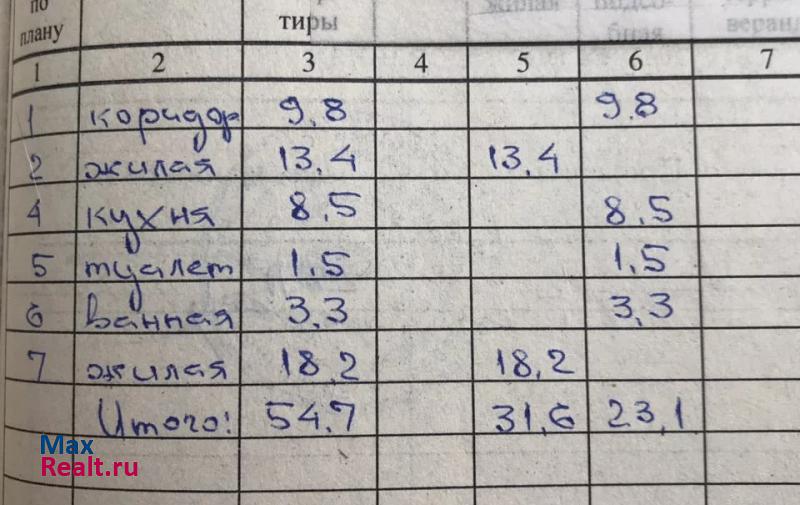 по
плану
тиры
жилая
подсо-
бная
веран
1 2 3 4 5 6 7
1 коридор 9,8 9.8
2 жилая 13,4 13,4
4 кухня 8,5 8,5
5 туалет 1,5 1,5
6 ванная 3,3 3,3
7 жилая 18,2 18,2
Итого: 54,7 31,6 23,1
Max
Realt.ru